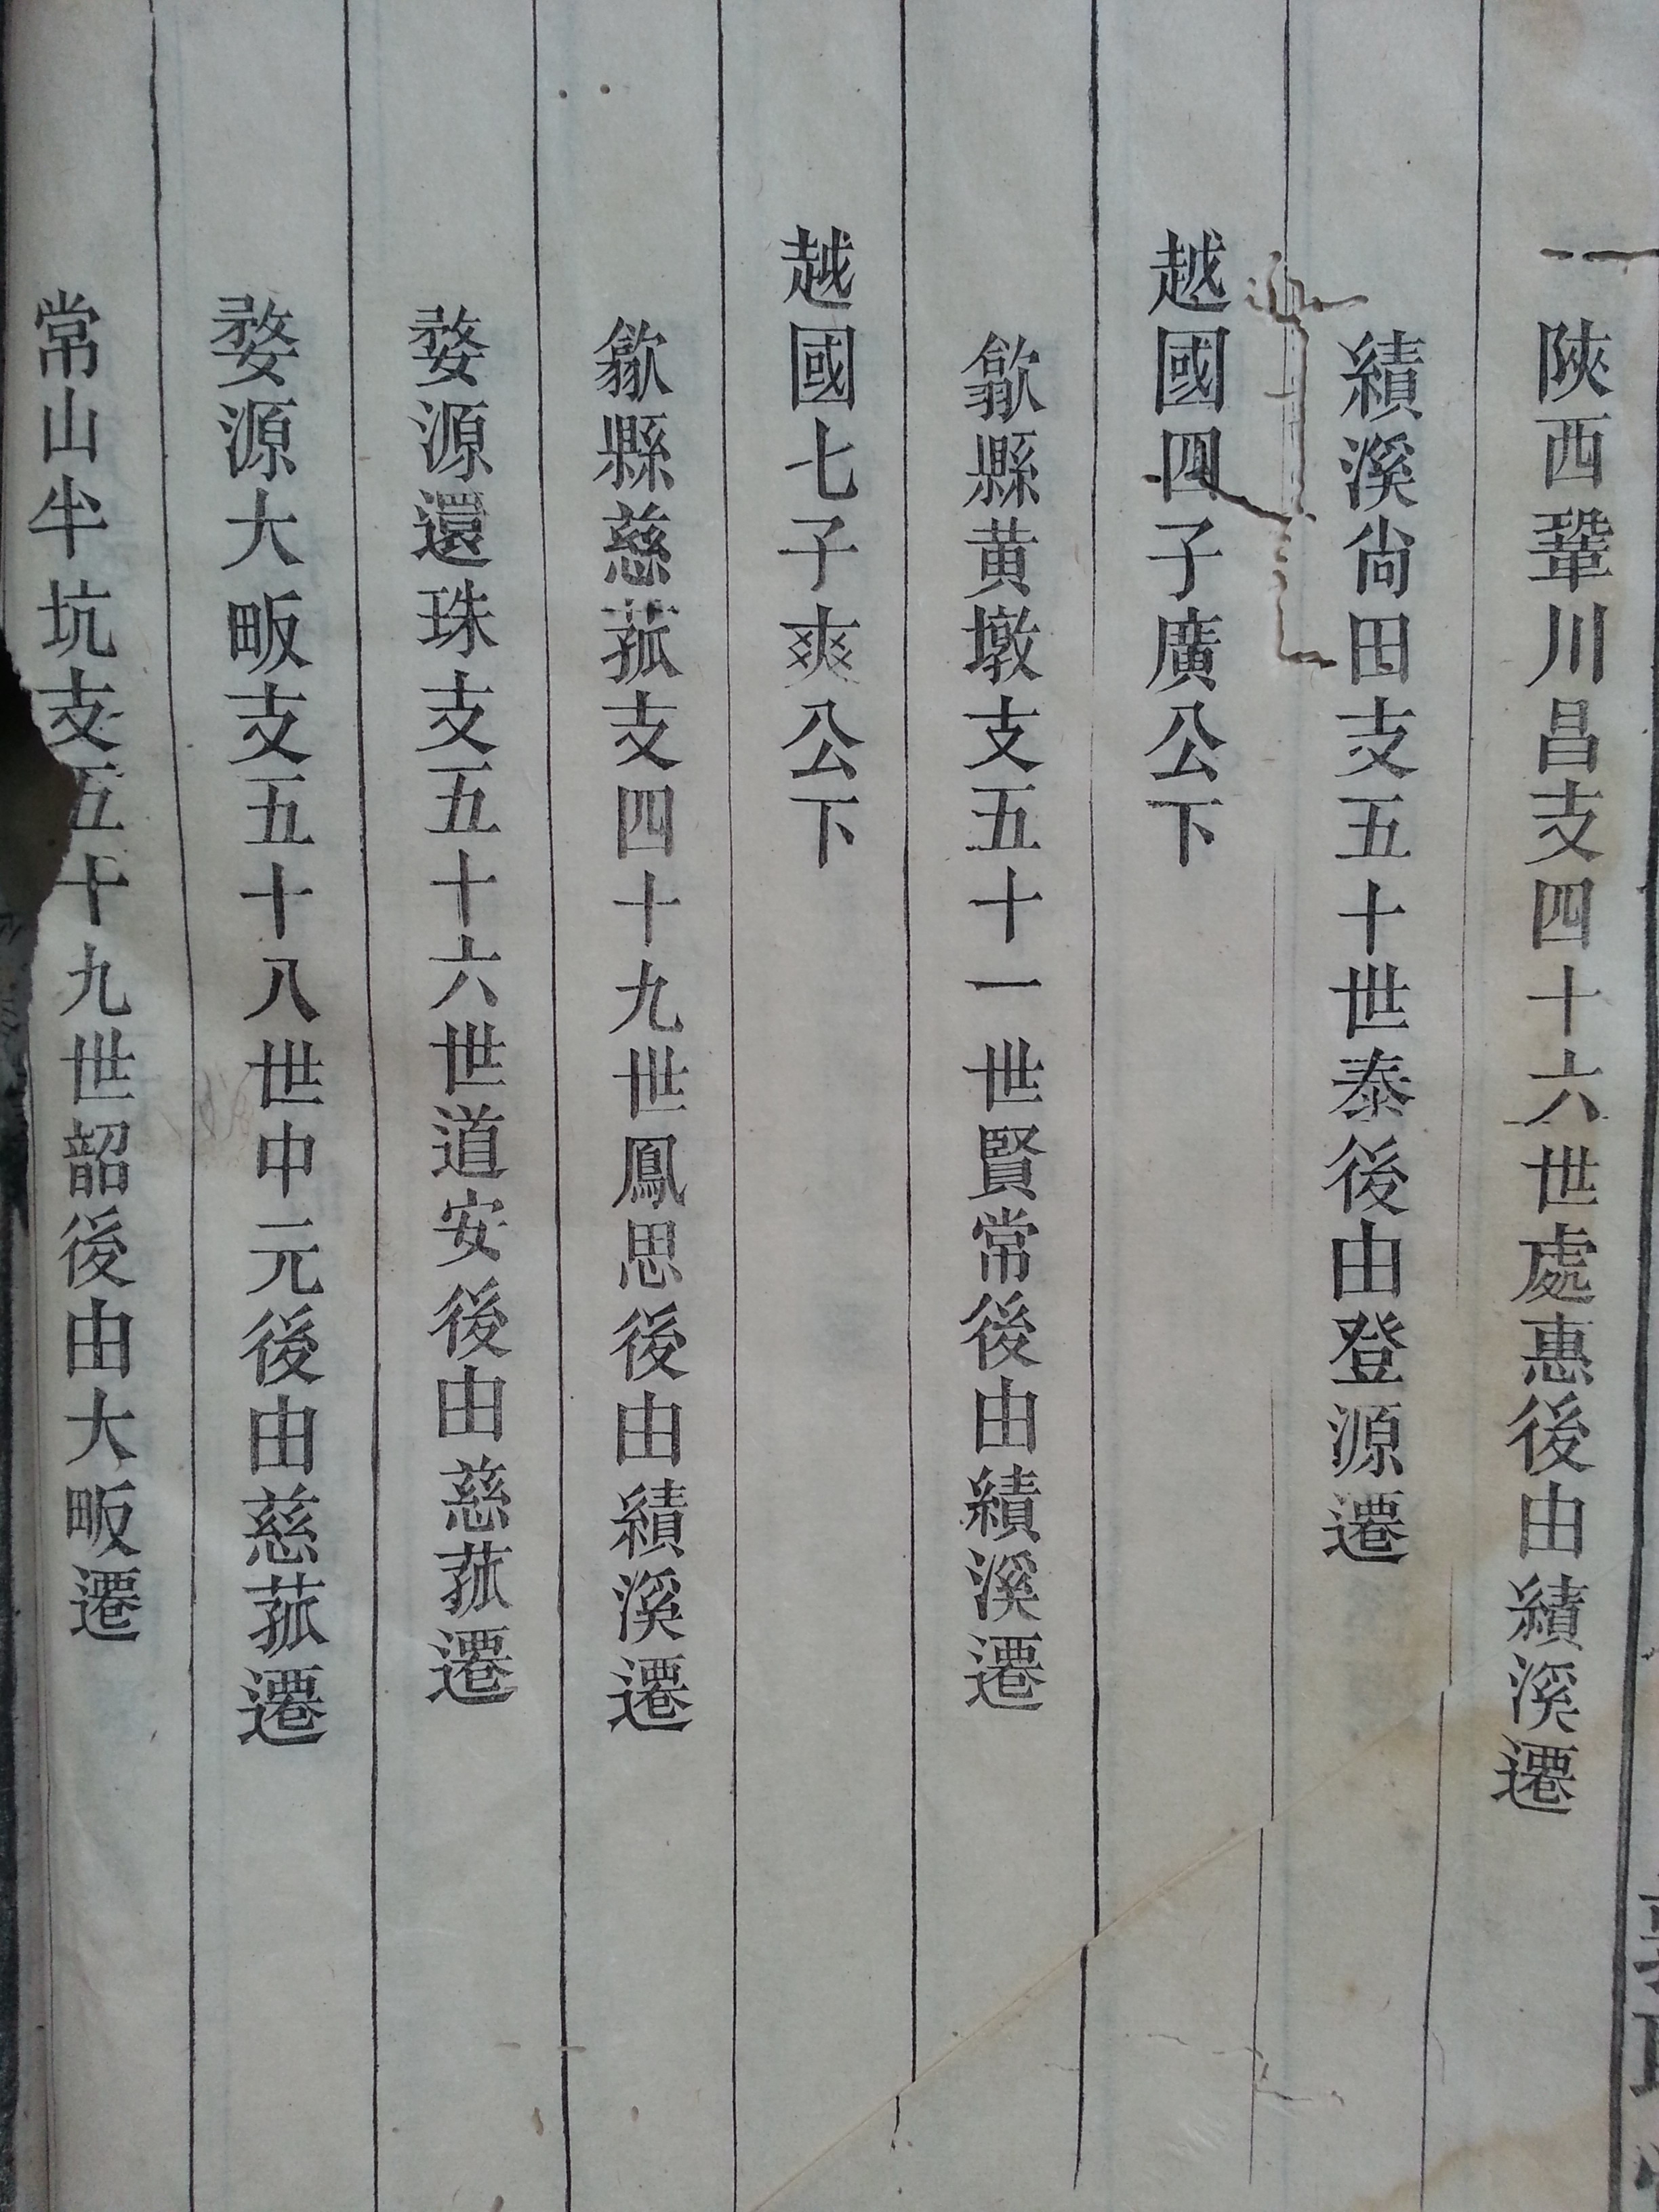 陝西鞏川昌支四十六世處惠後由績溪遷
績溪尙田支五十世泰後由登源遷
越國四子廣公下
歙縣黄墩支五十一世賢常後由績溪遷
越國七子爽公下
歙縣慈菰支四十九世鳳思後由績溪遷
婺源還珠支五十六世道安後由慈菰遷
婺源大畈支五十八世中元後由慈菰遷
常山半坑支五十九世韶後由大畈遷